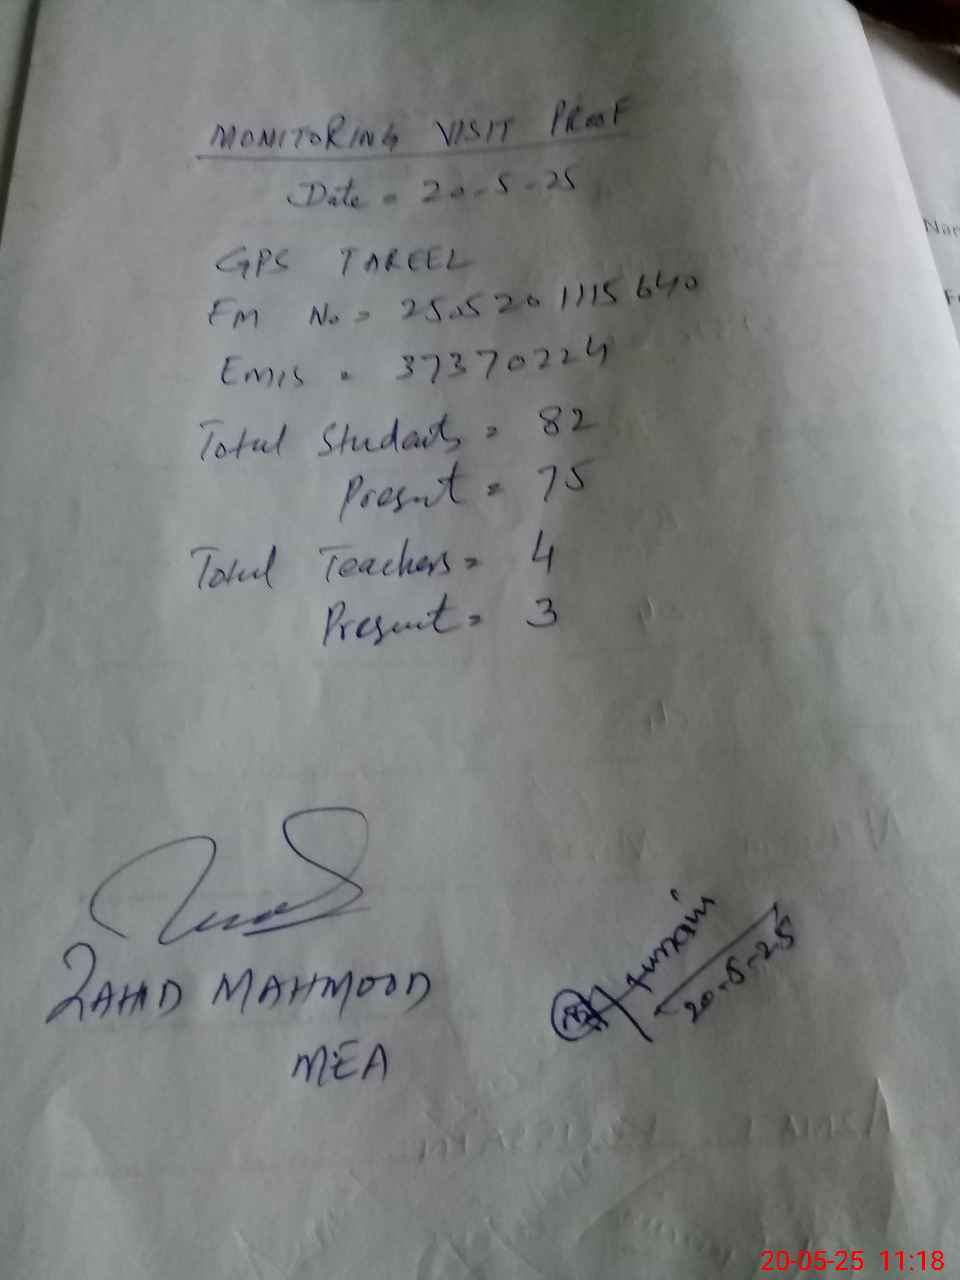 MONITORING VISIT PROOF
Date = 20-5-25
GPS TAREEL
FM No = 2505201115640
Emis = 37370224
Total Students = 82
Present = 75
Total Teachers = 4
Present = 3
ZAHID MAHMOOD
MEA
20-5-25
20-05-25 11:18